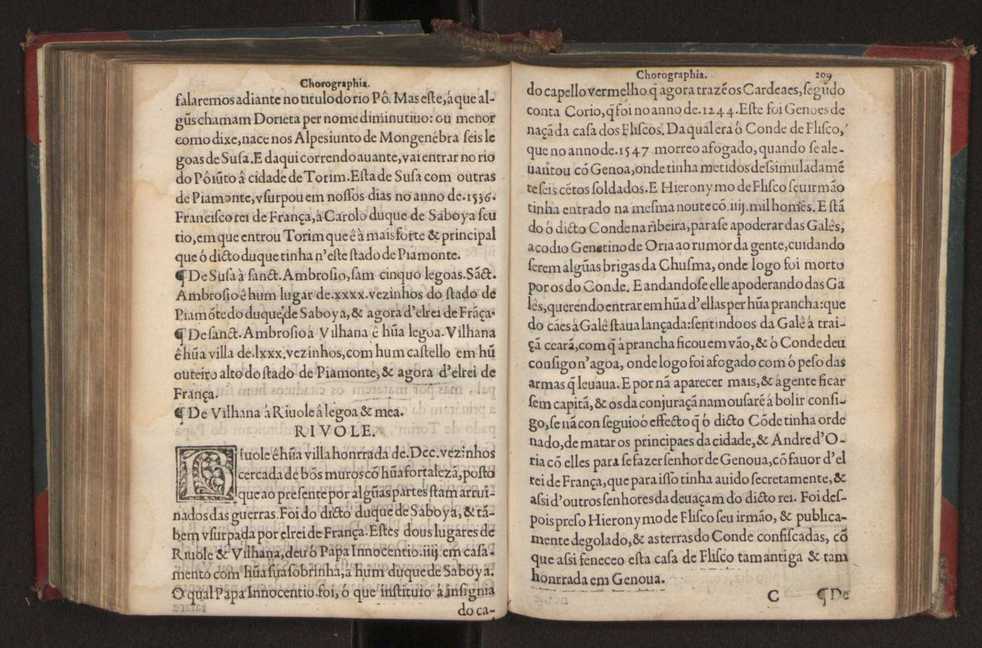 Chorographia.
falaremos adiante no titulo do rio Pô. Mas este, à que al-
gũs chamam Dorieta per nome diminutiuo: ou menor
como dixe, nace nos Alpes iunto de Mongenẽbra seis le
goas de Susa. E daqui correndo auante, vai entrar no rio
do Pô iũto â cidade de Torim. Esta de Susa com outras
de Piamonte, vsurpou em nossos dias no anno de .1536.
Francisco rei de França, à Carolo duque de Saboya seu
tio, em que entrou Torim que ê à mais forte & principal
que ó dicto duque tinha n'este stado de Piamonte.
¶ De Susa à sanct. Ambrosio, sam cinquo legoas. Sãct.
Ambrosio ê hum lugar de .xxxx. vezinhos do stado de
Piamõte do duque de Saboya, & agora d'elrei de Frãça.
¶ De sanct. Ambrosio à Vilhana ê hũa legoa. Vilhana
ê hũa villa de .lxxx. vezinhos, com hum castello em hũ
outeiro alto do stado de Piamonte, & agora d'elrei de
França.
¶ De Vilhana à Riuole â legoa & mea.
RIVOLE.
Riuole ê hũa villa honrrada de .Dcc. vezinhos
cercada de bõs muros cõ hũa fortalezã, posto
que ao presente por algũas partes stam arrui-
nados das guerras. Foi do dicto duque de Saboya, & tã-
bem vsurpada por elrei de França. Estes dous lugares de
Riuole & Vilhana, deu ó Papa Innocentio .iiij. em casa-
mento com hũa sua sobrinha, a hum duque de Saboya.
O qual Papa Innocentio foi, ó que instituio à insignia
do ca-
Chorographia. 209
do capello vermelho q̃ agora trazẽ os Cardeaes, segũdo
conta Corio, q̃ foi no anno de .1244. Este foi Genoes de
naçã da casa dos Fliscos. Da qual era ó Conde de Flisco,
que no anno de .1547 morreo afogado, quando se ale-
uantou cõ Genoa, onde tinha metidos dessimuladamẽ
te seis cẽtos soldados. E Hieronymo de Flisco seu irmão
tinha entrado na mesma noute cõ .iij. mil homẽs. E stã
do ó dicto Conde na ribeira, para se apoderar das Galês,
açodio Genetino de Oria ao rumor da gente, cuidando
serem algũas brigas da Chusma, onde logo foi morto
por os do Conde. E andandose elle apoderando das Ga
lês, querendo entrar em hũa d'ellas per hũa prancha: que
do cães à Galê staua lançada: sentindo os da Galê à trai-
çã ceará, com q̃ à prancha ficou em vão, & ó Conde deu
consigo n'agoa, onde logo foi afogado com ó peso das
armas q̃ leuaua. E por nã aparecer mais, & à gente ficar
sem capitã, & os da conjuraçã nam ousarẽ á bolir consi-
go, se nã conseguio ó effecto q̃ ó dicto Cõde tinha orde
nado, de matar os principaes da cidade, & Andre d'O-
ria cõ elles para se fazer senhor de Genoua, cõ fauor d'el
rei de França, que para isso tinha auido secretamente, &
assi d'outros senhores da deuaçam do dicto rei. Foi des-
pois preso Hieronymo de Flisco seu irmão, & publica-
mente degolado, & as terras do Conde confiscadas, cõ
que assi feneceo esta casa de Flisco tam antiga & tam
honrrada em Genoua.
C ¶ De